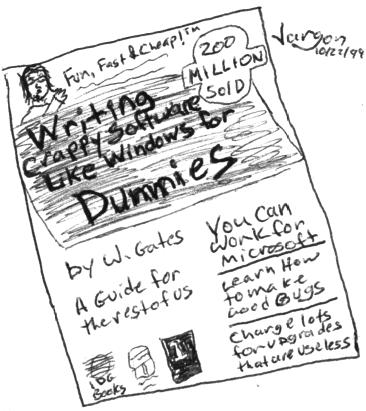 Jargon
10/22/99
Fun, Fast & Cheap!™
200
MILLION
SOLD
Writing
Crappy Software
Like Windows for
Dummies
by W. Gates
A Guide for
the rest of us
You Can
work for
Microsoft
Learn How
to make
good Bugs
Charge lots
for upgrades
that are useless
IDG
Books